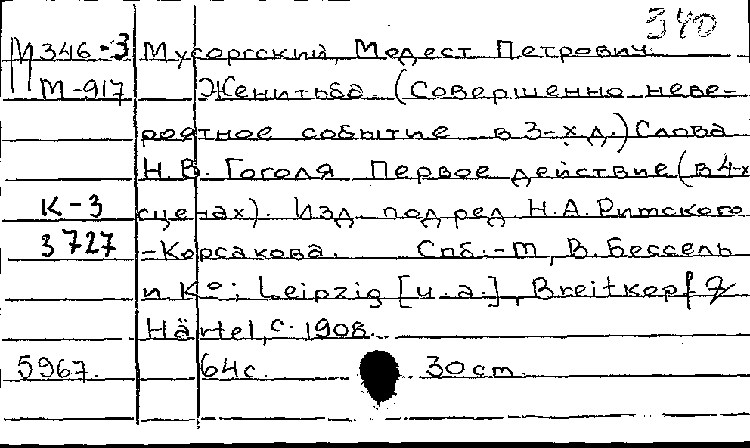 340
М346-3 Мусоргский, Модест Петрович.
М-917 Женитьба. (Совершенно неве-
роятное событие в 3-х д.) Слова
Н.В. Гоголя Первое действие (в 4-х
К-3 сценах). Изд. под ред Н.А. Римского
3727 -Корсакова. Спб.-М, В. Бессель
и К°; Leipzig [u.a.], Breitkopf &
Härtel, c. 1908.
5967. 64с. 30 cm